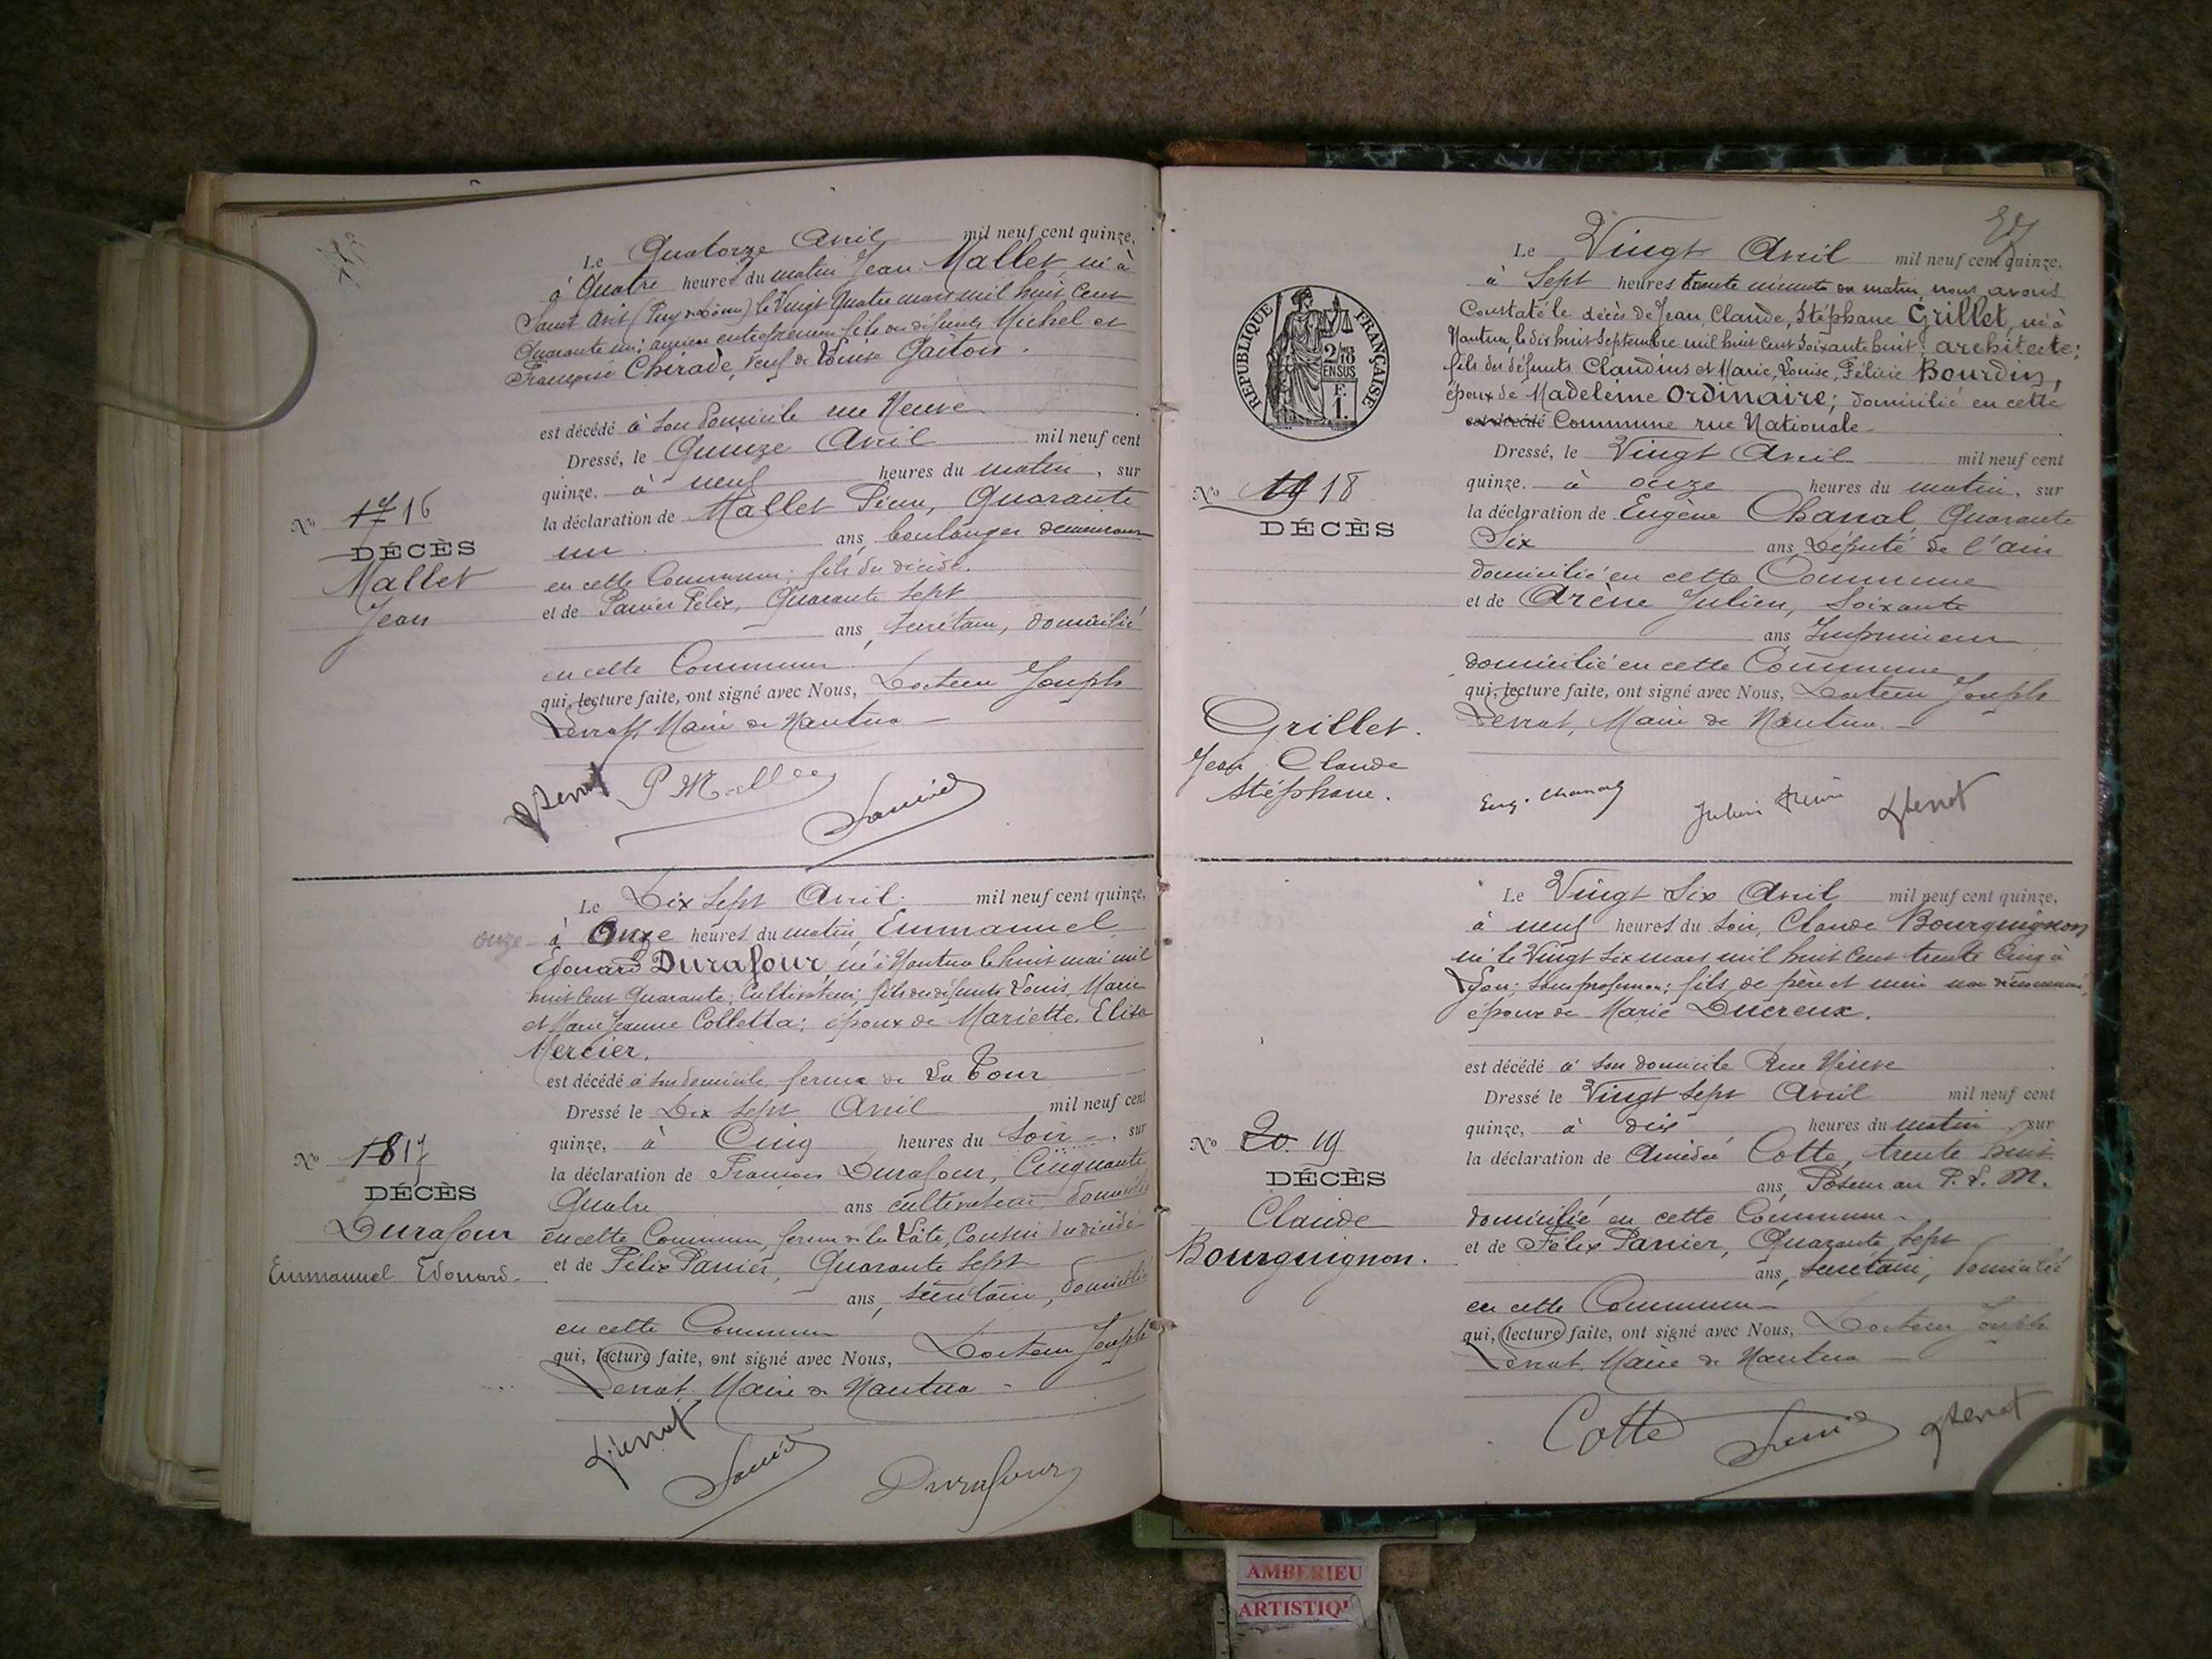 Le Quatorze Avril mil neuf cent quinze,
à Quatre heures du matin Jean Mallet né à
Saint Avit (Puy de Dôme) le Vingt Quatre mars mil huit Cent
Quarante un; ancien entrepreneur fils des défunts Michel et
Françoise Chirade, veuf de Louise Gaitois.
est décédé à son domicile rue Neuve
Dressé, le Quinze Avril mil neuf cent
quinze, à neuf heures du matin, sur
la déclaration de Mallet Pierre, Quarante
un ans, boulanger demeurant
en cette Commune; fils du décédé.
et de Panier Félix, Quarante Sept
ans, secrétaire, domicilié
en cette Commune
qui, lecture faite, ont signé avec Nous, Docteur Joseph
Levrat, Maire de Nantua
No 17 16
DÉCÈS
Mallet
Jean
P Mallet
Le Dix Sept Avril mil neuf cent quinze,
onze à Onze heures du matin, Emmanuel
Edouard Durafour né à Nantua le huit mai mil
huit Cent Quarante; Cultivateur; fils des défunts Louis, Marie
et Marie Jeanne Colletta; époux de Mariette Elisa
Mercier.
est décédé à son domicile ferme de La Tour
Dressé le Dix Sept Avril mil neuf cent
quinze, à Cinq heures du soir, sur
la déclaration de François Durafour, Cinquante
Quatre ans cultivateur domicilié
en cette Commune, ferme de la Côte, Cousin du décédé
et de Félix Panier, Quarante Sept
ans, secrétaire, domicilié
en cette Commune
qui, lecture faite, ont signé avec Nous, Docteur Joseph
Levrat Maire de Nantua
No 18 17
DÉCÈS
Durafour
Emmanuel Edouard
Durafour
Le Vingt Avril mil neuf cent quinze.
à Sept heures trente minutes du matin, nous avons
Constaté le décès de Jean, Claude, Stéphane Grillet, né à
Nantua, le dix huit Septembre mil huit Cent Soixante huit; architecte;
fils des défunts Claudius et Marie, Louise, Félicie Bourdin,
époux de Madeleine Ordinaire; domicilié en cette
est décédé Commune rue Nationale
Dressé, le Vingt Avril mil neuf cent
quinze. à onze heures du matin, sur
la déclaration de Eugène Chanal, Quarante
Six ans, Député de l'ain
domicilié en cette Commune
et de Arène Julien, Soixante
ans Imprimeur
domicilié en cette Commune
qui, lecture faite, ont signé avec Nous, Docteur Joseph
Levrat, Maire de Nantua.
RÉPUBLIQUE FRANÇAISE
2/10 EN SUS
F. 1.
No 19 18
DÉCÈS
Grillet.
Jean Claude
Stéphane.
Eug. Chanal Julien Arène
Le Vingt Six Avril mil neuf cent quinze,
à neuf heures du soir, Claude Bourguignon
né le Vingt Six mars mil huit Cent trente Cinq à
Lyon; sans profession; fils de père et mère non dénommés,
époux de Marie Ducreux.
est décédé à son domicile Rue Neuve
Dressé le Vingt Sept Avril mil neuf cent
quinze, à dix heures du matin, sur
la déclaration de Amédée Cotte, trente huit
ans, Poseur au P. L. M.
domicilié en cette Commune
et de Félix Panier, Quarante Sept
ans, secrétaire, domicilié
en cette Commune
qui, lecture faite, ont signé avec Nous, Docteur Joseph
Levrat, Maire de Nantua
No 20 19
DÉCÈS
Claude
Bourguignon.
Cotte
AMBERIEU
ARTISTIQU